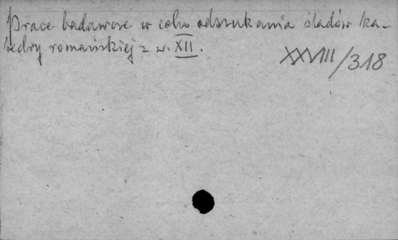 Prace badawcze w celu odszukania śladów ka-
tedry romańskiej z w. XII.
XXVIII/318